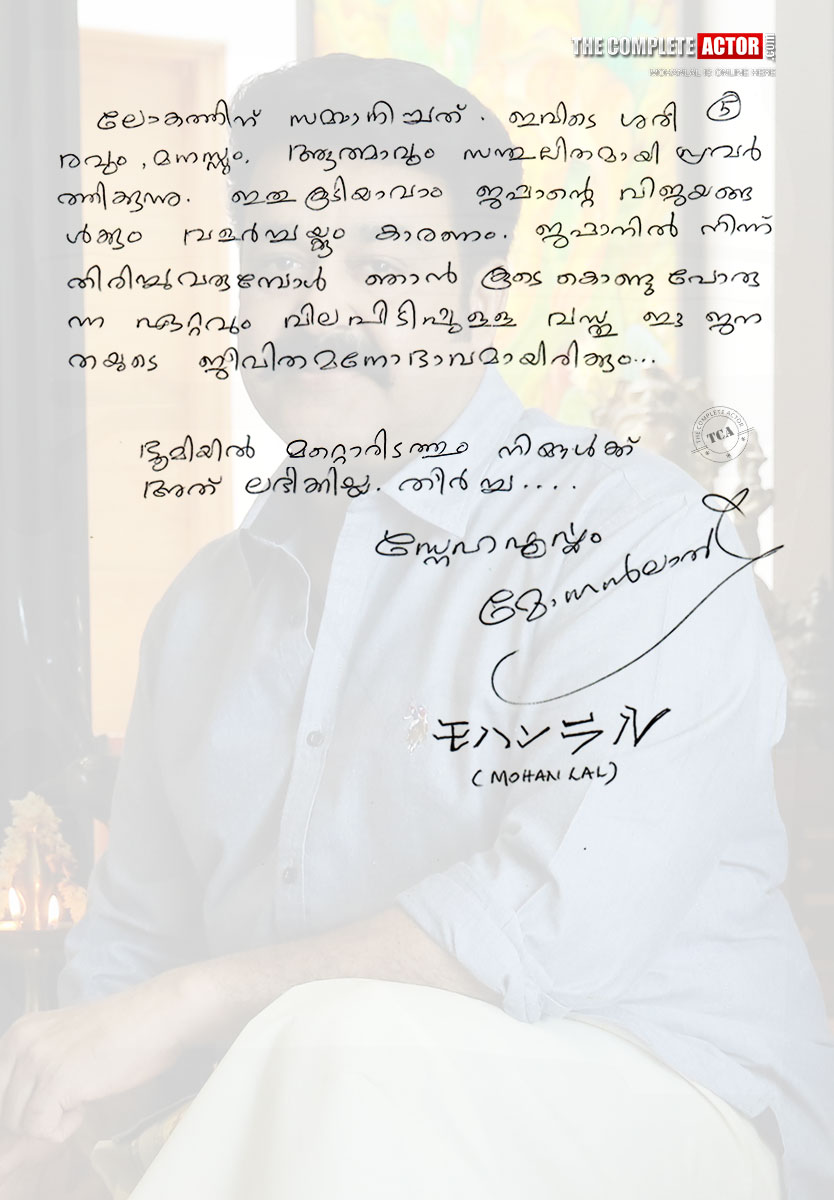 THE COMPLETE ACTOR .com
MOHANLAL IS ONLINE HERE
5
ലോകത്തിന് സമ്മാനിച്ചത്. ഇവിടെ ശരീ
രവും, മനസ്സും, ആത്മാവും സന്തുലിതമായി പ്രവർ
ത്തിക്കുന്നു. ഇതു കൂടിയാവാം ജപ്പാന്റെ വിജയങ്ങ
ൾക്കും വളർച്ചയ്ക്കും കാരണം. ജപ്പാനിൽ നിന്ന്
തിരിച്ചുവരുമ്പോൾ ഞാൻ കൂടെ കൊണ്ടു പോരു
ന്ന ഏറ്റവും വിലപിടിപ്പുള്ള വസ്തു ഈ ജന
തയുടെ ജീവിതമനോഭാവമായിരിക്കും...
ഭൂമിയിൽ മറ്റൊരിടത്തും നിങ്ങൾക്ക്
അത് ലഭിക്കില്ല. തീർച്ച....
സ്നേഹപൂർവ്വം
മോഹൻലാൽ
モハンラル
(MOHANLAL)
THE COMPLETE ACTOR
TCA